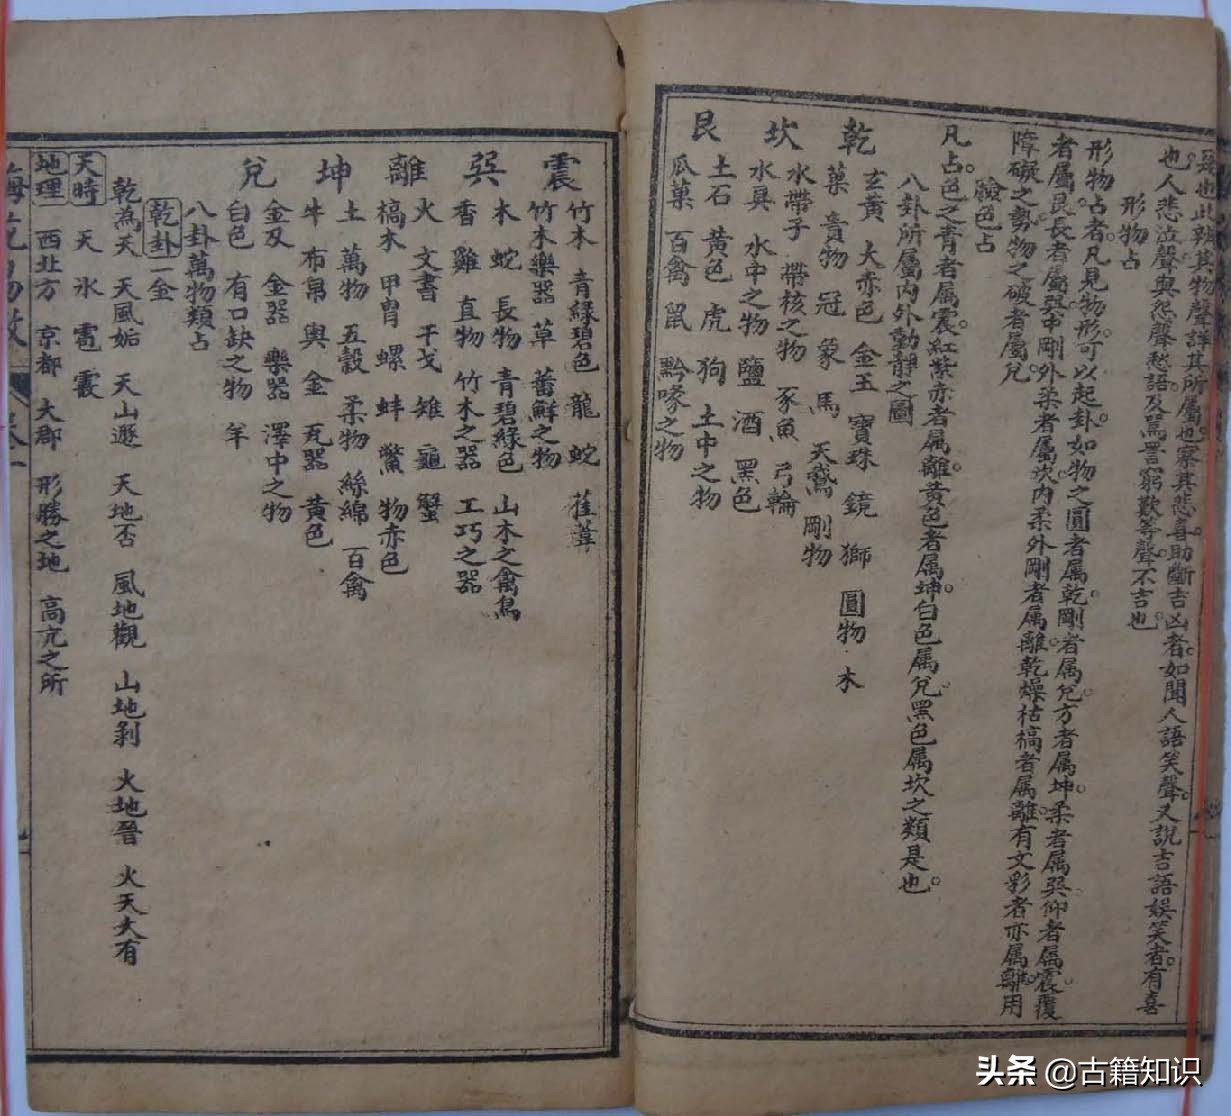 也此辨其物聲詳其所屬也察其悲喜助斷吉凶者如聞人語笑聲又說吉語娛笑者有喜
也人悲泣聲與怨聲愁語及罵詈窮歎等聲不吉也
形物占
形物占者凡見物形可以起卦如物之圓者属乾剛者属兌方者属坤柔者属巽仰者属震覆
者屬艮長者屬巽中剛外柔者屬坎内柔外剛者属離乾燥枯槁者属離有文彩者亦属離用
障礙之勢物之破者屬兌
驗色占
凡占色之青者属震紅紫赤者属離黄色者属坤白色属兌黑色属坎之類是也
八卦所屬内外動靜之圖
乾 玄黄 大赤色 金玉 寶珠 鏡 獅 圓物 木
菓 貴物 冠 象 馬 天鵞 剛物
坎 水帶子 帶核之物 豕魚 弓輪
水具 水中之物 鹽 酒 黑色
艮 土石 黄色 虎 狗 土中之物
瓜菓 百禽 鼠 黔喙之物
震 竹木 青緑碧色 龍 蛇 萑葦
竹木樂器 草 蕃鮮之物
巽 木 蛇 長物 青碧緑色 山木之禽鳥
香 雞 直物 竹木之器 工巧之器
離 火 文書 干戈 雉 龜 蟹
槁木 甲冑 螺 蚌 鱉 物赤色
坤 土 萬物 五穀 柔物 絲綿 百禽
牛 布帛 輿 金 瓦器 黄色
兌 金及 金器 樂器 澤中之物
白色 有口缺之物 羊
八卦萬物類占
乾卦 一金
乾為天 天風姤 天山遯 天地否 風地觀 山地剥 火地晉 火天大有
天時 天 氷 雹 霰
地理 西北方 京都 大郡 形勝之地 高亢之所
頭条 @古籍知识